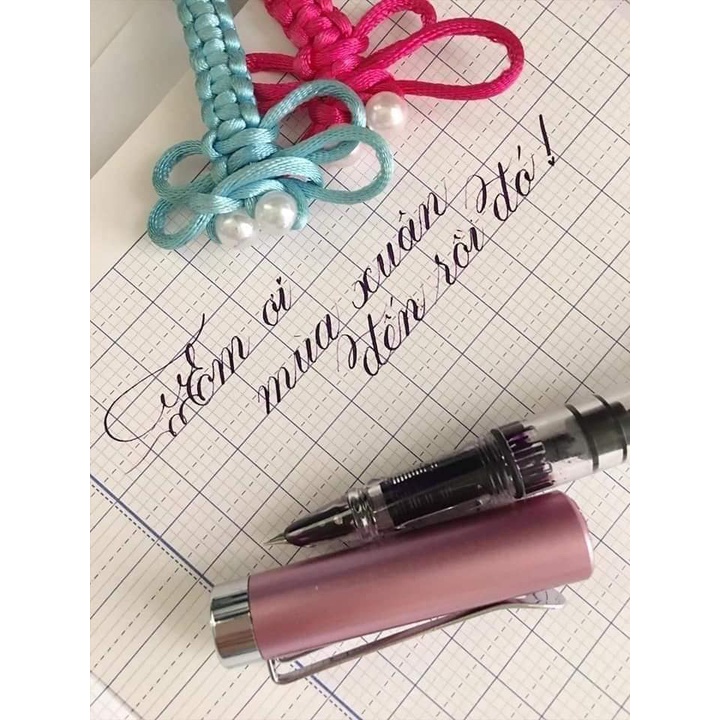 Em ơi
mùa xuân
đến rồi đó!